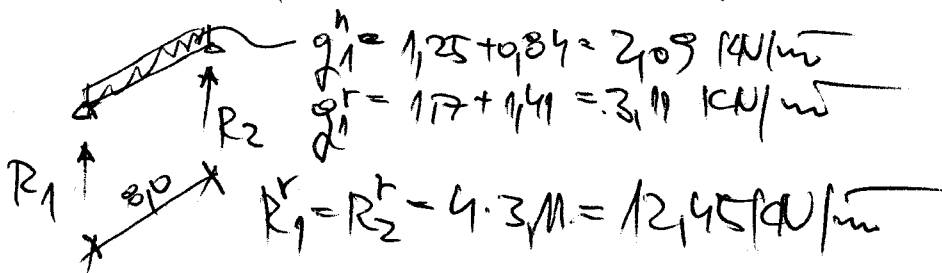 g₁ⁿ = 1,25 + 0,84 = 2,09 KN/m
g₁ʳ = 1,7 + 1,41 = 3,11 KN/m
R₁ R₂
8,0
R₁ʳ = R₂ʳ = 4·3,11 = 12,45 KN/m